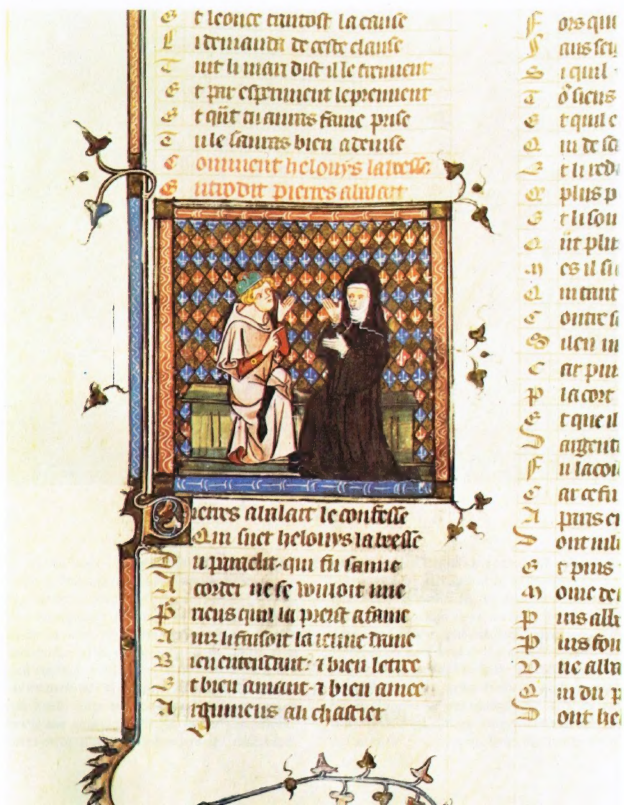 E t leonce tantost la cause
L i demanda de ceste clause
T uit li mari dist il le treuvent
E t par esperiment lepreuvent
E t qnt tu auras fame prise
T u le sauras bien a devise
C omment helouys labesse
pierres abalart
P ierres abalart le confesse
Q ui suer helouys labeesse
D u paraclit qui fu samie
A corder ne se vouloit mie
P riens quil la preist a fame
A inz li faisoit la ieune dame
B ien entendant & bien letree
E t bien amant & bien amee
A rgumens au chastier
F ors qui
S i quil
E t quil e
Q ui de sa
E t li red
Q plus p
E t li sou
Q
M es il su
Q ui tant
C ontre s
C ar pui
P la cort
E t que il
D argent
F u la cou
C ar ce fu
A paris e
D ont mil
E t puis
M oine de
P uis alla
P uis fon
Q ui du p
D ont he